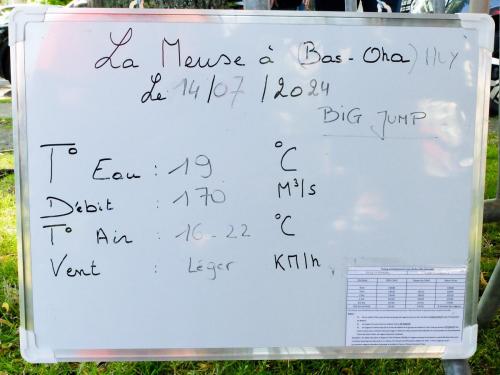 La Meuse à (Bas-Oha) HUY
Le 14/07/2024
BIG JUMP
T° Eau : 19 °C
Débit : 170 M³/s
T° Air : 16-22 °C
Vent : Léger KM/h